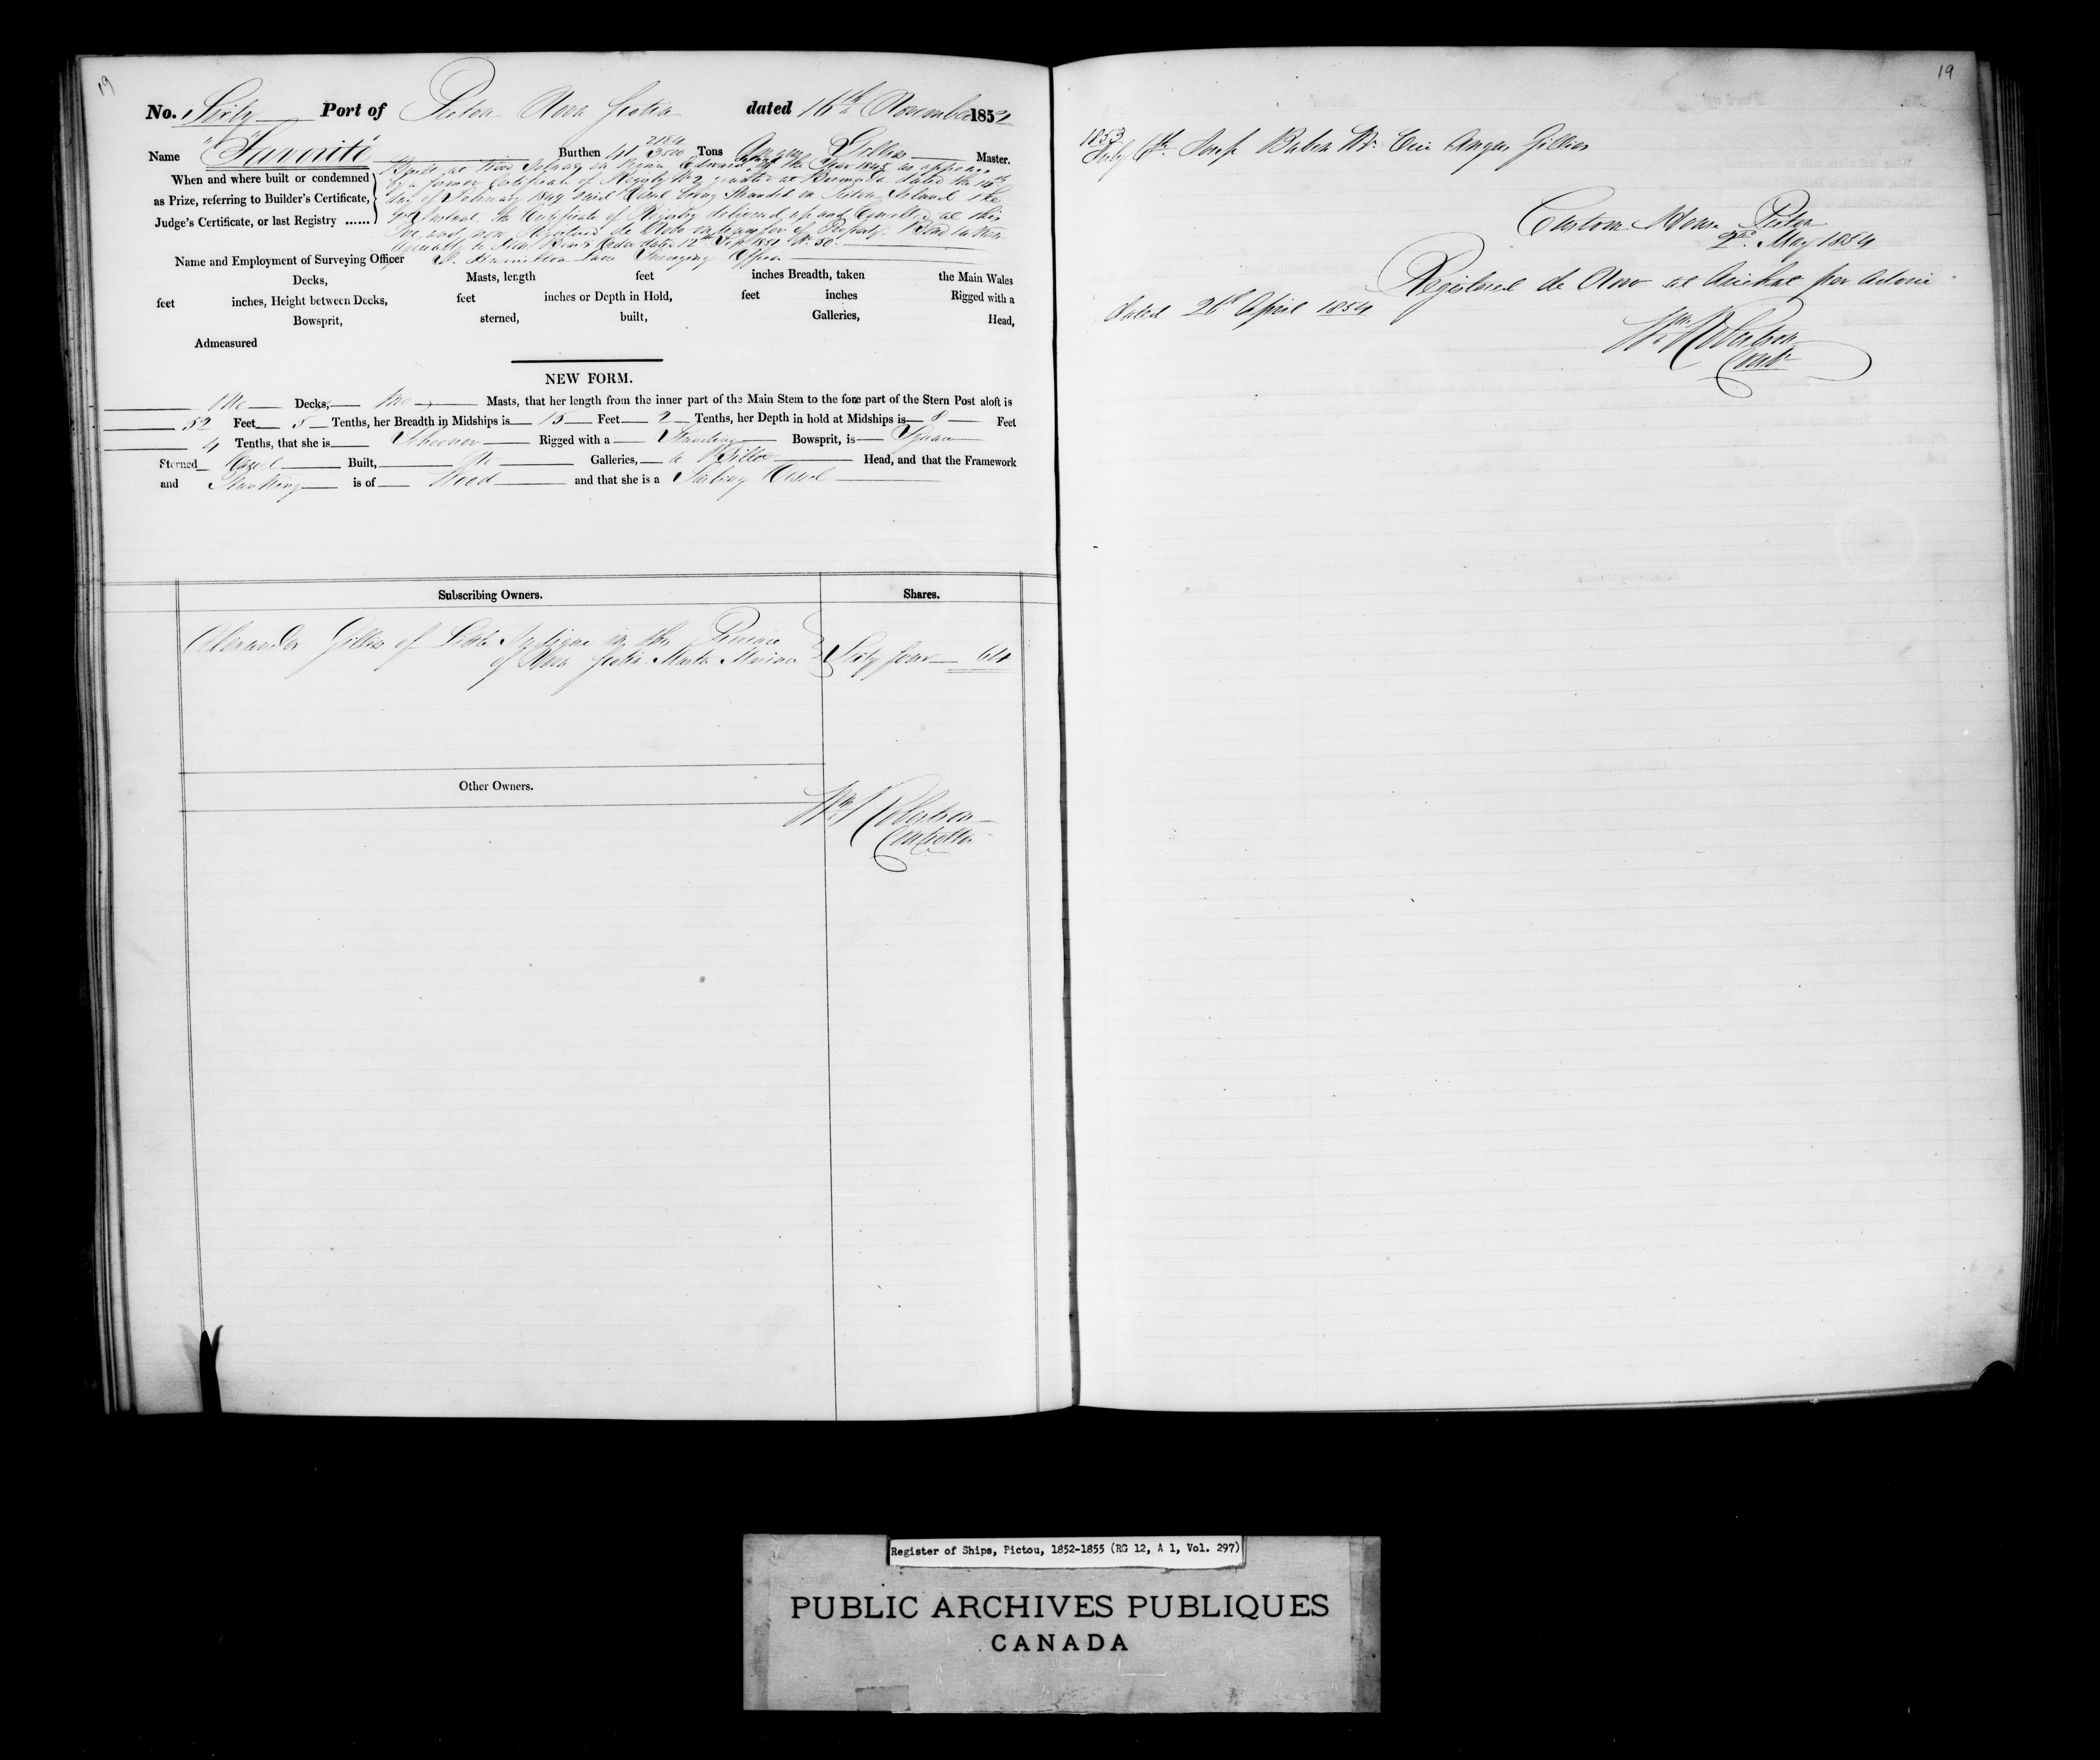 19
No. Sixty Port of Pictou Nova Scotia dated 16th November 1852
Name "Favorite" Burthen 41 2184/3500 Tons Angus Gillis Master.
When and where built or condemned
as Prize, referring to Builder's Certificate,
Judge's Certificate, or last Registry ......
at in Prince Edward the Year 1845 as appears
by a former Certificate of Registry No 2 granted at Bermuda dated the 14th
day of February 1849 said Vessel being Stranded on Pictou Island the
Instant, the Certificate of Registry delivered up and Cancelled at this
and now Registered de Novo on transfer of Property.
Agreeably to Order dated 12th Sept 1851 No. 50.
Name and Employment of Surveying Officer Hamilton Lane Surveying Officer
Decks, Masts, length feet inches Breadth, taken the Main Wales
feet inches, Height between Decks, feet inches or Depth in Hold, feet inches Rigged with a
Bowsprit, sterned, built, Galleries, Head,
Admeasured
NEW FORM.
One Decks, two Masts, that her length from the inner part of the Main Stem to the fore part of the Stern Post aloft is
52 Feet 8 Tenths, her Breadth in Midships is 15 Feet 2 Tenths, her Depth in hold at Midships is 8 Feet
4 Tenths, that she is Schooner Rigged with a Standing Bowsprit, is Square
Sterned Carvel Built, No Galleries, a Billet Head, and that the Framework
and Planking is of Wood and that she is a Sailing Vessel
Subscribing Owners. Shares.
Alexander Gillis of Little in the Province
of Nova Scotia Master Mariner Sixty four 64
Other Owners.
Wm Robertson
Controller
19
1853
July 6th Joseph Babin Mr. Vice Angus Gillies
Custom House Pictou
2nd May 1854
Registered de Novo at Arichat per Advice
dated 26th April 1854
Wm Robertson
Contr
Register of Ships, Pictou, 1852-1855 (RG 12, A 1, Vol. 297)
PUBLIC ARCHIVES PUBLIQUES
CANADA